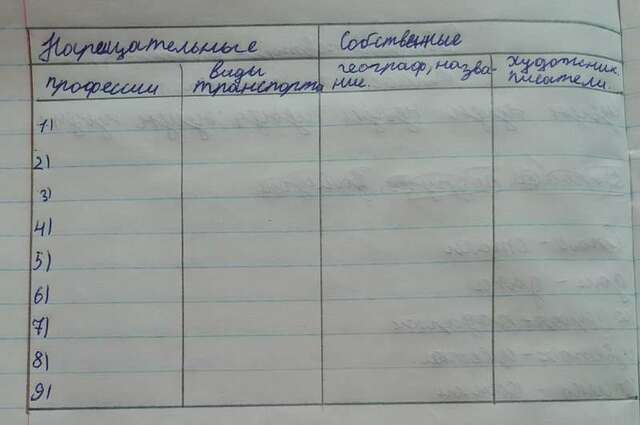 Нарицательные Собственные
профессии виды транспорта географ, назва- ние. художник. писатели.
1)
2)
3)
4)
5)
6)
7)
8)
9)